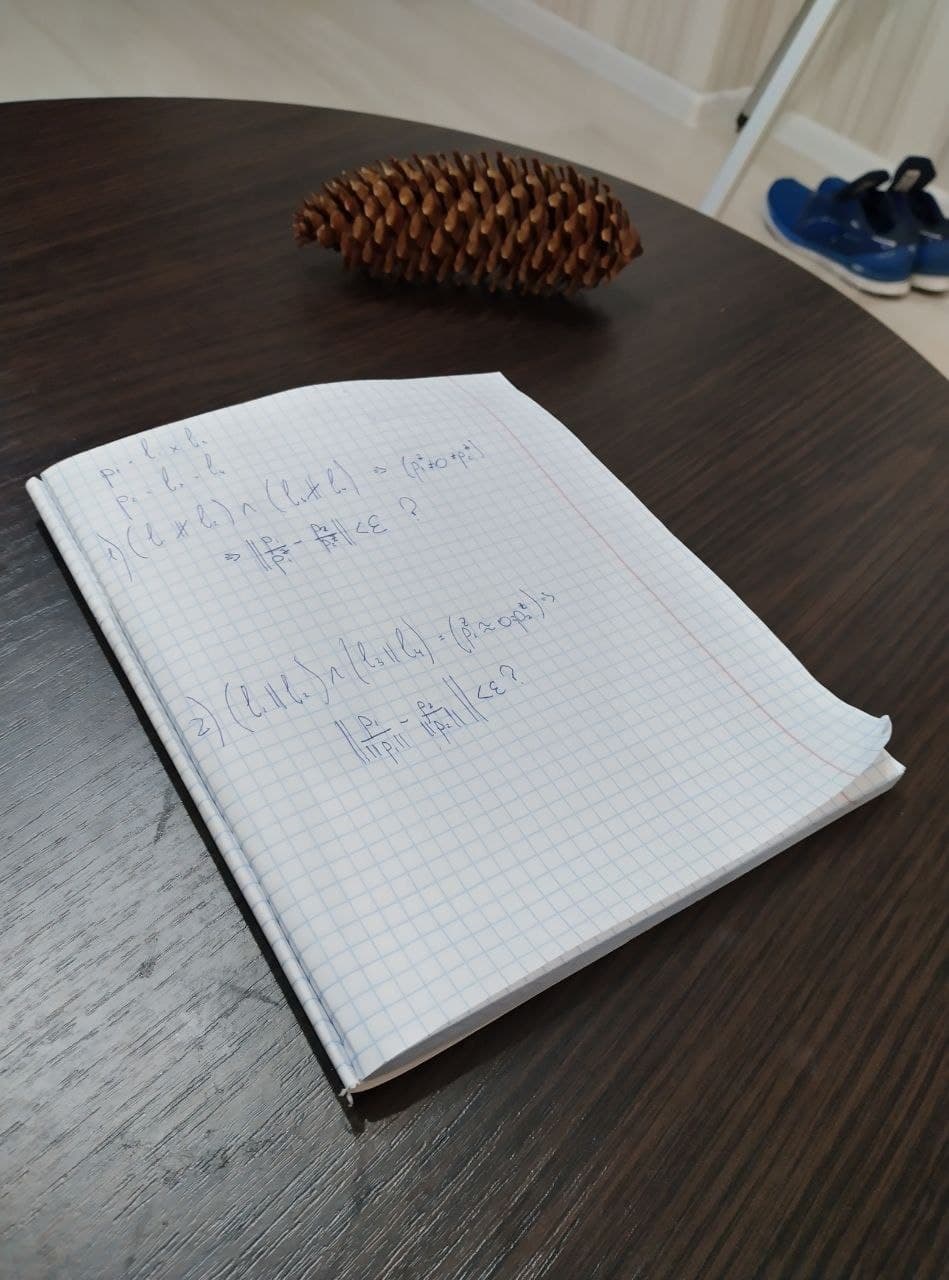 p₁ = l₁ × l₂
p₂ = l₃ × l₄
1) (l₁ ∦ l₂) ∧ (l₃ ∦ l₄) ⇒ (p₁ᶻ ≠ 0 ≠ p₂ᶻ)
⇒ ||p₁/p₁ᶻ - p₂/p₂ᶻ|| < ε ?
2) (l₁ || l₂) ∧ (l₃ || l₄) = (p₁ᶻ ≈ 0 ≈ p₂ᶻ) ⇒
|| p₁/||p₁|| - p₂/||p₂|| || < ε ?